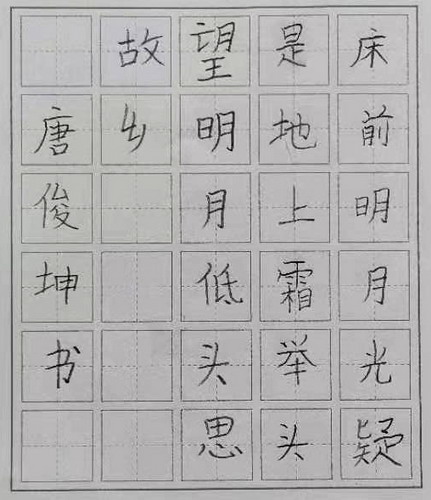 床前明月光疑
是地上霜举头
望明月低头思
故乡
唐俊坤书